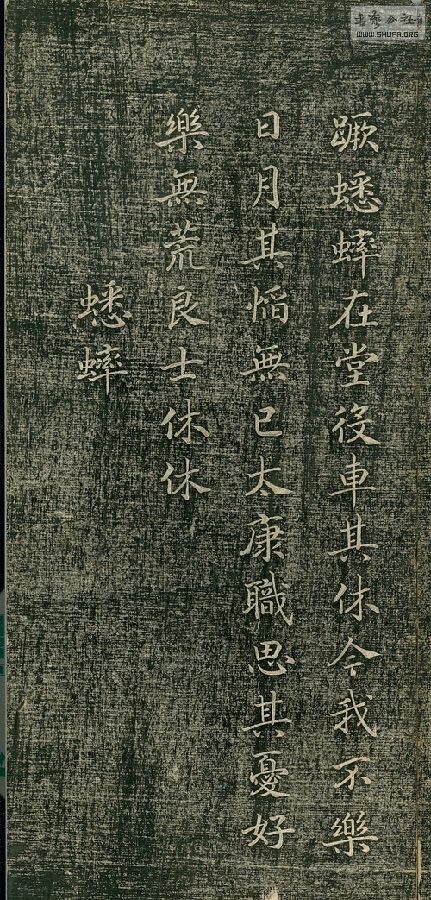 蹶蟋蟀在堂役車其休今我不樂
日月其慆無已太康職思其憂好
樂無荒良士休休
蟋蟀
WWW.SHUFA.ORG